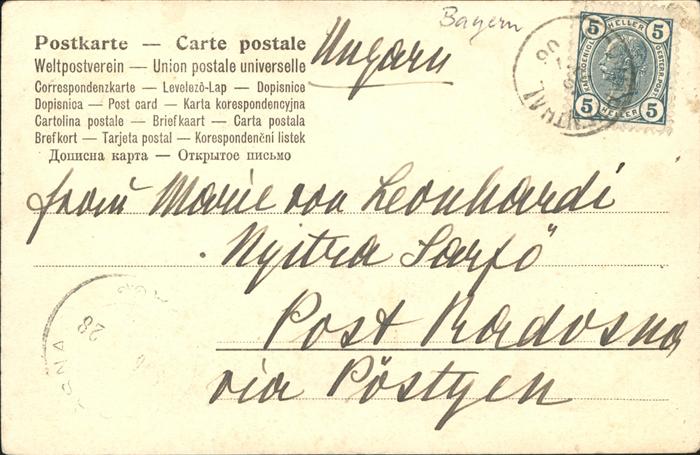 Bayern
Postkarte — Carte postale
Ungarn
Weltpostverein — Union postale universelle
Correspondenzkarte — Levelező-Lap — Dopisnice
Dopisnica — Post card — Karta korespondencyjna
Cartolina postale — Briefkaart — Carta postala
Brefkort — Tarjeta postal — Korespondenční listek
Дописна карта — Открытое письмо
5 HELLER 5
5 HELLER 5
06
from Marie von Leonhardi
Nyitra Sarfö
Post Radosna
via Pöstyen
28